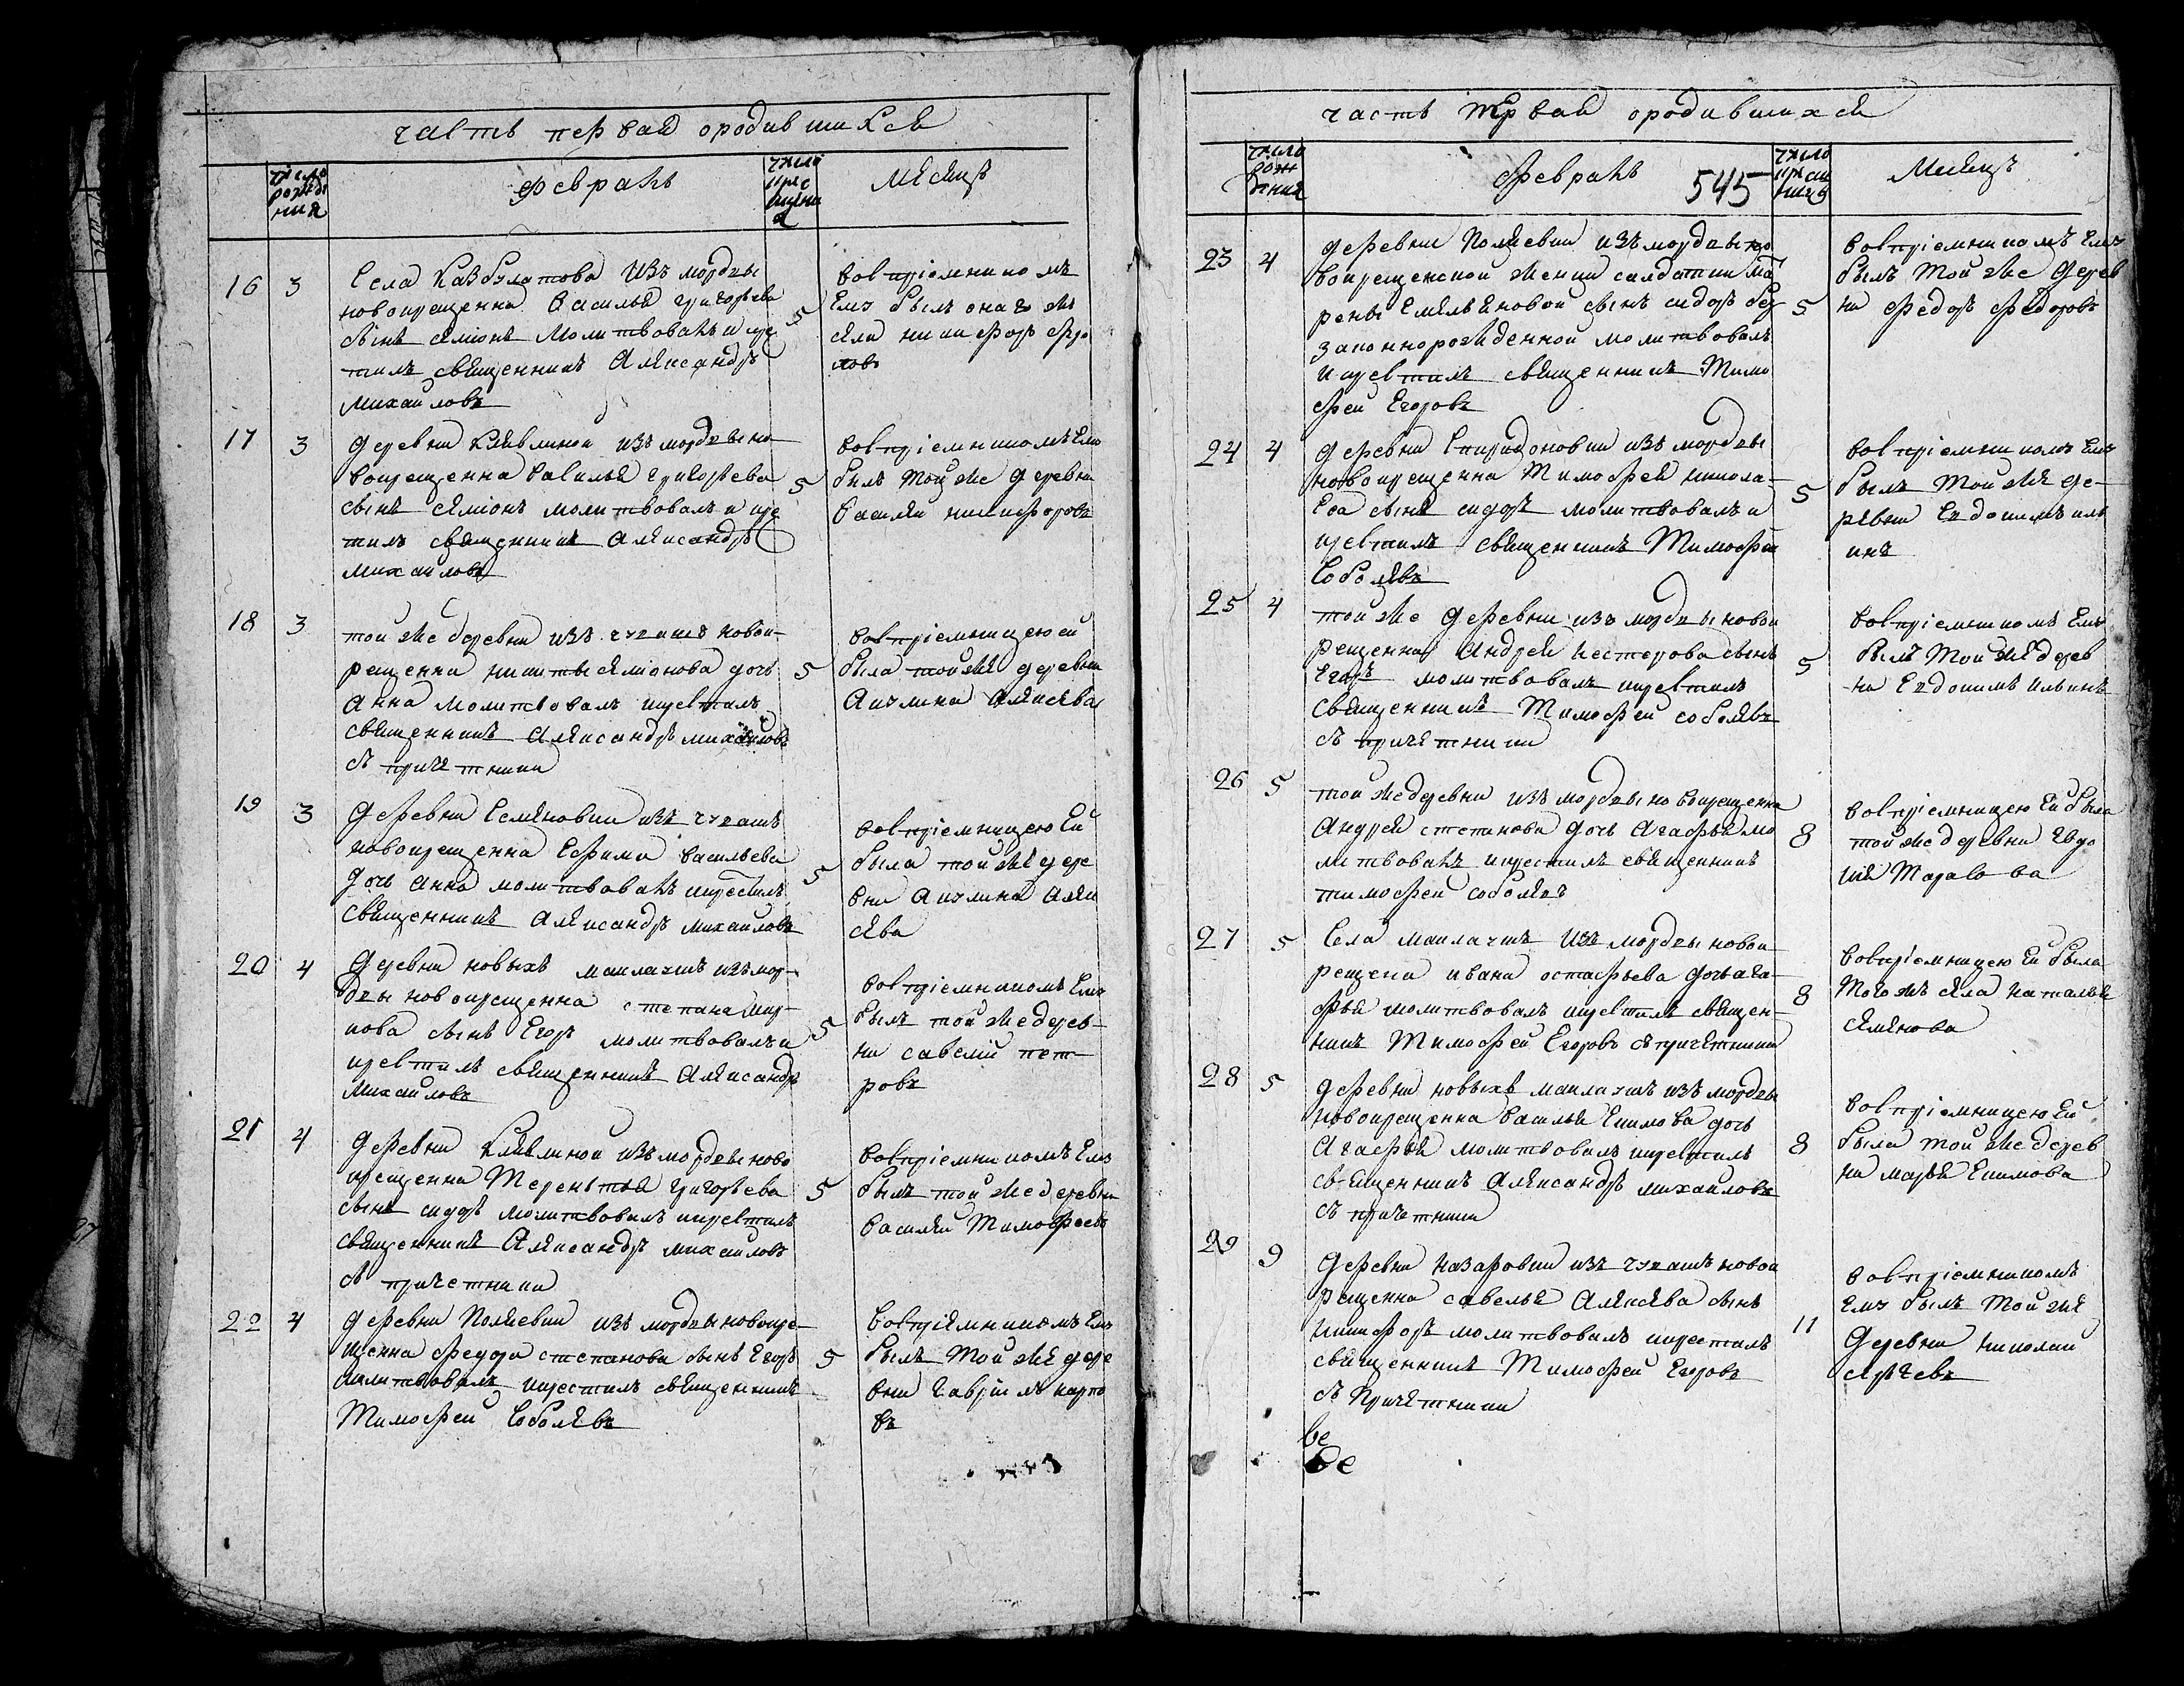 часть первая ородившихся
число рожде ния
февраль
число кре щени я
месяцъ
16 3
Села Казбулатова изъ мордвы
новокрещенна Василья григорьева
сынъ семіонъ молитвовалъ и кре
стилъ священникъ Александръ
Михаиловъ
5
Воспріемникомъ
Ему былъ онаго жъ
села никифоръ фро
ловъ
17 3
Деревни Клявлиной изъ мордвы но
вокрещенна василья григорьева
сынъ семіонъ молитвовалъ и кре
стилъ священникъ Александръ
михаиловъ
5
воспріемникомъ Ему
былъ той же деревни
василеи никифоровъ
18 3
той же деревни изъ чувашъ новок
рещенна никиты семіонова дочь
анна молитвовалъ икрестилъ
священникъ александръ михаиловъ
съ причетники
5
воспріемницею ей
была той же деревни
Акулина алексева
19 3
Деревни Семеновки изъ чувашъ
новокрещенна Ефима васильева
дочь анна молитвовалъ икрестилъ
священникъ александръ михаиловъ
5
воспріемницею Ей
была той же дере
вни Акулина алек
сева
20 4
Деревни новыхъ маклаушъ изъ мор
двы новокрещенна степана
нова сынъ Егоръ молитвовалъ и
крестилъ священникъ александръ
михаиловъ
5
воспріемникомъ Ему
былъ той же дерев
ни савелій пет
ровъ
21 4
Деревни Клявлиной изъ мордвы ново
крещенна Терентья григорьева
сынъ сидоръ молитвовалъ икрестилъ
священникъ Александръ михаиловъ
съ причетники
5
воспріемникомъ Ему
былъ той же деревни
василеи Тимофеевъ
22 4
Деревни Поляевки изъ мордвы новокре
щенна федора степанова сынъ Егоръ
молитвовалъ икрестилъ священникъ
Тимофей Соболевъ
5
Воспріемникомъ Ему
былъ той же дере
вни гавріилъ карпо
въ
часть первая ородившихся
число рож дения
февраль 545
число крещ ения
Месецъ
23 4
деревни Поляевки изъ мордвы но
вокрещенской женки салдатки мат
рены Емельяновой сынъ сидоръ без
законнорожденной молитвовалъ
и крестилъ священникъ Тимо
фей Егоровъ
5
воспріемникомъ Ему
былъ той же дерев
ни федоръ федоровъ
24 4
деревни Спиридоновки изъ мордвы
новокрещенна Тимофея никола
Ева сынъ сидоръ молитвовалъ и
крестилъ священникъ Тимофеи
Соболевъ
5
воспріемникомъ Ему
былъ той же де
ревни Евдокимъ иль
инъ
25 4
той же деревни изъ мордвы новок
рещенна Андрея нестерова сынъ
Егоръ молитвовалъ икрестилъ
священникъ Тимофей соболевъ
съ причетники
5
воспріемникомъ Ему
былъ той же дерев
ни Евдокимъ ильинъ
26 5
той же деревни изъ мордвы новокрещенна
андрея степанова дочь Агафья мо
литвовалъ икрестилъ священникъ
тимофей соболевъ
8
воспріемницею Ей была
той же деревни Евдо
кия Тарасова
27 5
Села маклаушъ изъ мордвы новок
рещена ивана остафьева дочь ага
фья молитвовалъ икрестилъ священ
никъ Тимофей Егоровъ съ причетники
8
воспріемницею Ей была
того жъ села наталья
семенова
28 5
деревни новыхъ маклаушъ изъ мордвы
новокрещенна василья Екимова дочь
Агафья молитвовалъ икрестилъ
священникъ Александръ михаиловъ
съ причетники
8
воспріемницею Ей
была той же дерев
ни марья Екимова
29 9
деревни назаровки изъ чувашъ новок
рещенна савелья Алексева сынъ
никифоръ молитвовалъ икрестилъ
священникъ Тимофей Егоровъ
съ причетники
11
воспріемникомъ
Ему былъ той же
деревни николай
сергеевъ
ве
ве